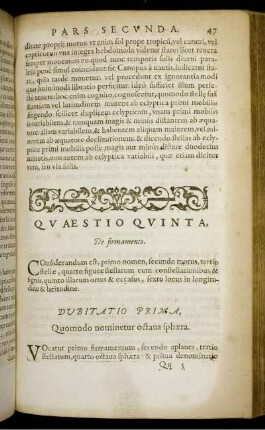 PARS SECVNDA. 47
ditate propris motus vt enim sol prope tropicū, vel cancri, vel
capricorni vna integra hebdomada videtur stare: licet reuera
semper moueatur eo quod tunc temporis solis diurni
penè simul coincidant: sic Canopus à nautis, iudicatur
quia tardè mouetur, vel procedunt ex ignorantia modi
quo huiusmodi libratio perficitur. ideo sufficiet illum
hoc enim cognito, cognoscetur, quomodo stellæ
dum vel latitudinem mutent ab ecliptica primi mobilis
fingendo volitare super eclipticam, quam primi mobilis
& nunquam magis & minùs distantem ab
ore aliàm variabilem, & habentem aliquam maiorem vel
rem ab æquatore declinationem. & dicendo stellas ab eclyp-
tica primi mobilis posse magis aut minùs distare duodecim
minutis, non autem ab ecliptica variabili, quæ etiam dicitur
vera, seu via solis.
QVAESTIO QVINTA,
De firmamento.
COnsiderandum est, primo nomen, secundo motus, tertiò
stellæ, quarto figuræ stellarum cum constellationibus &
signis, quinto illarum ortus & occasus, sexto locus in longitu-
dine & latitudine.
DVBITATIO PRIMA,
Quomodo nominetur octaua sphæra.
VOcatur primo firmamentum, secundo aplanes, tertio
stellatum, quarto octaua sphæra: & prima denominatio